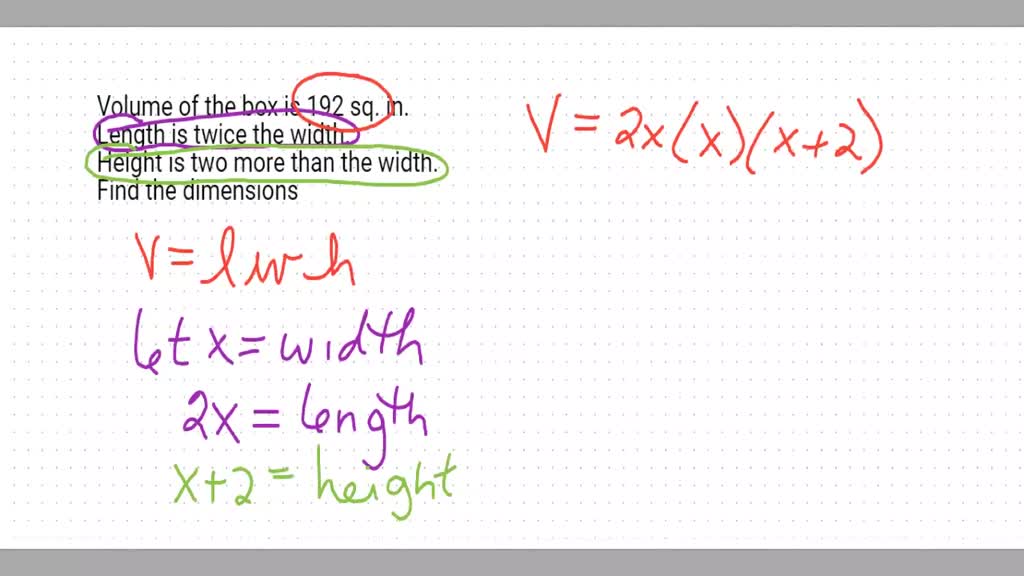 Volume of the box is 192 sq. in.
Length is twice the width.
Height is two more than the width.
Find the dimensions
V = 2x(x)(x+2)
V = lwh
let x = width
2x = length
x+2 = height